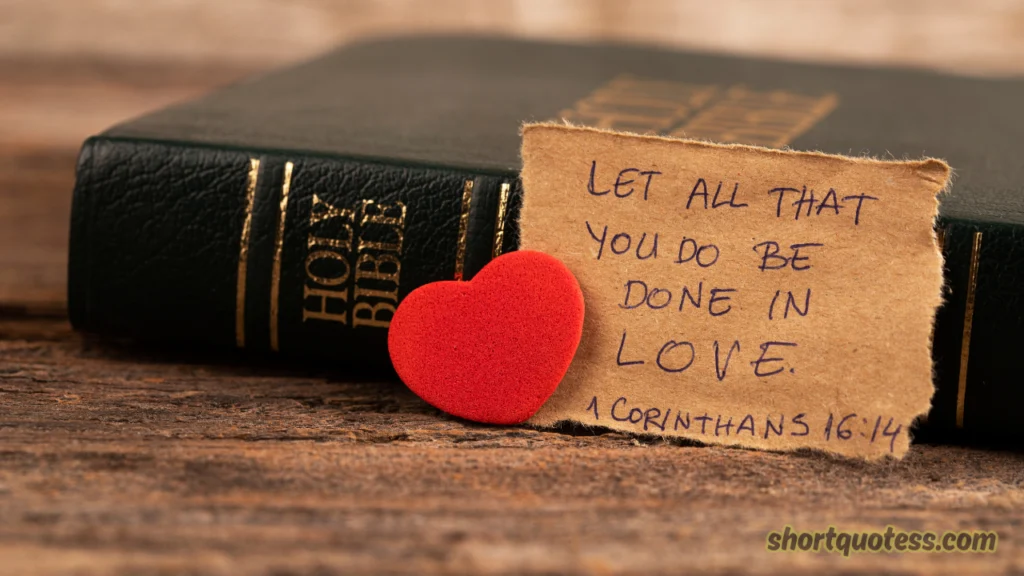 HOLY
BIBLE
LET ALL THAT
YOU DO BE
DONE IN
LOVE.
1 CORINTHANS 16:14
shortquotess.com